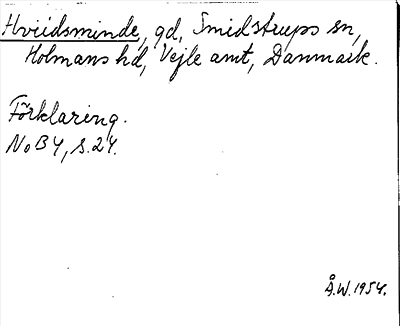 Hviidsminde, gd, Smidstrups sn,
Holmans hd, Vejle amt, Danmark.
Förklaring.
NoB Y, s. 24.
Å.W. 1954.